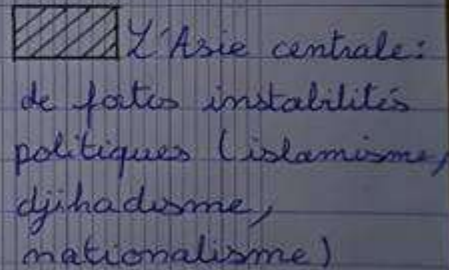 L'Asie centrale:
de fortes instabilités
politiques (islamisme,
djihadisme,
nationalisme)